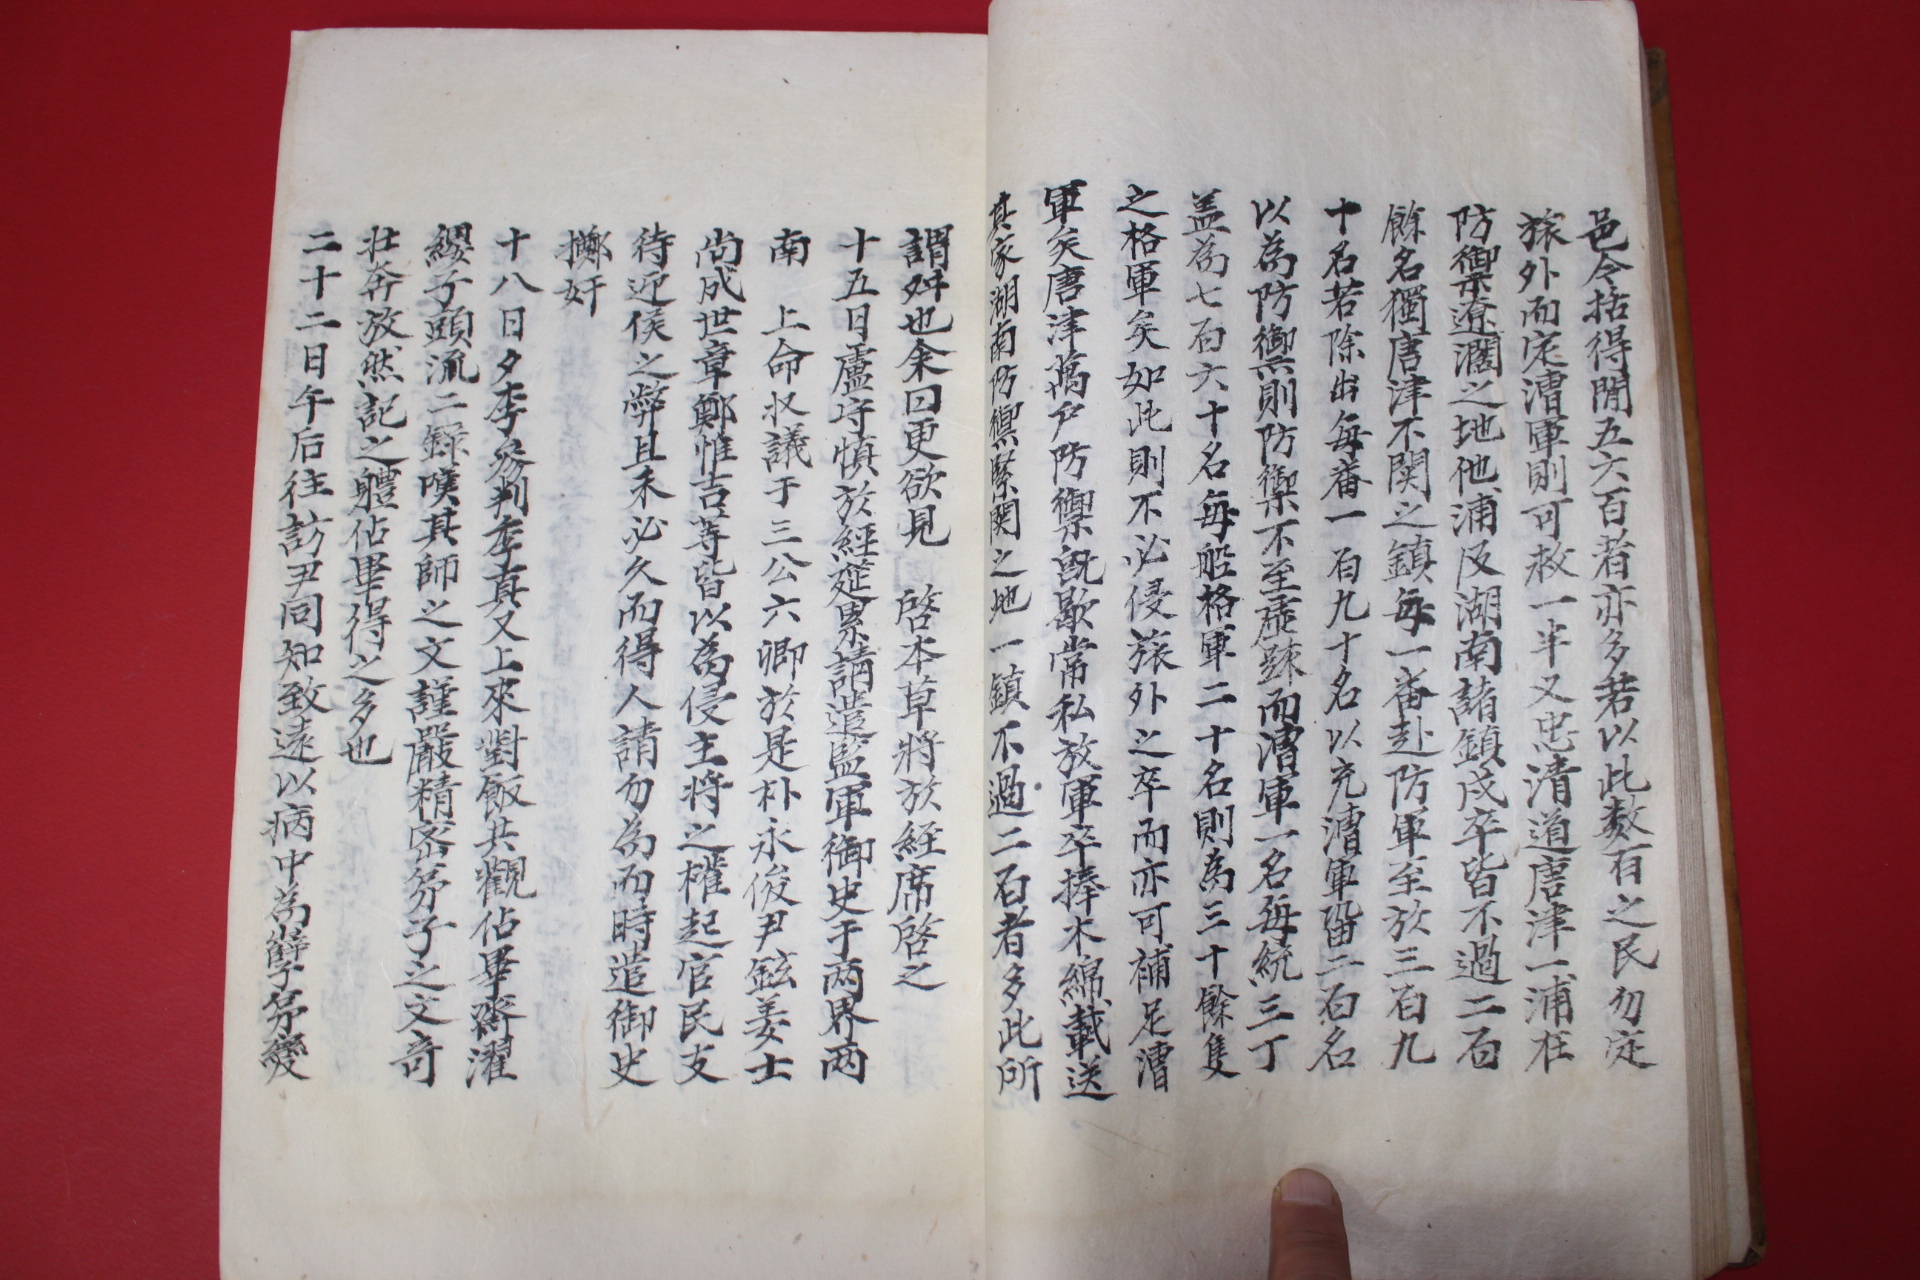 邑令括得閒五六百者亦多若以此数百之民勿定
旅外而定漕軍則可救一半又忠清道唐津一浦在
防禦遼濶之地他浦及湖南諸鎮戍卒皆不過二百
餘名獨唐津不関之鎮每一番赴防軍至於三百九
十名若除出每番一百九十名以充漕軍留二百名
以為防禦則防禦不至虛踈而漕軍一名每統三丁
盖為七百六十名每船格軍二十名則為三十餘隻
之格軍矣如此則不必侵旅外之卒而亦可補足漕
軍矣唐津萬戸防禦既歇常私放軍卒捧木綿載送
其家湖南防禦緊関之地一鎮不過二百者多此所
謂舛也余曰更欲見 啓本草將於経席啓之
十五日盧守慎於經筵累請遣監軍御史于两界两
南 上命収議于三公六卿於是朴永俊尹鉉姜士
尚成世章鄭惟吉等皆以為侵主將之權起官民支
待迎候之弊且未必久而得人請勿為而時遣御史
擲奸
十八日夕李参判季真又上來對飯共觀佔畢齋濯
纓子頭流二錄嘆其師之文謹嚴精密弟子之文奇
壮奔放然記之體佔畢得之多也
二十二日午后往訪尹同知致遠以病中為孽弟變